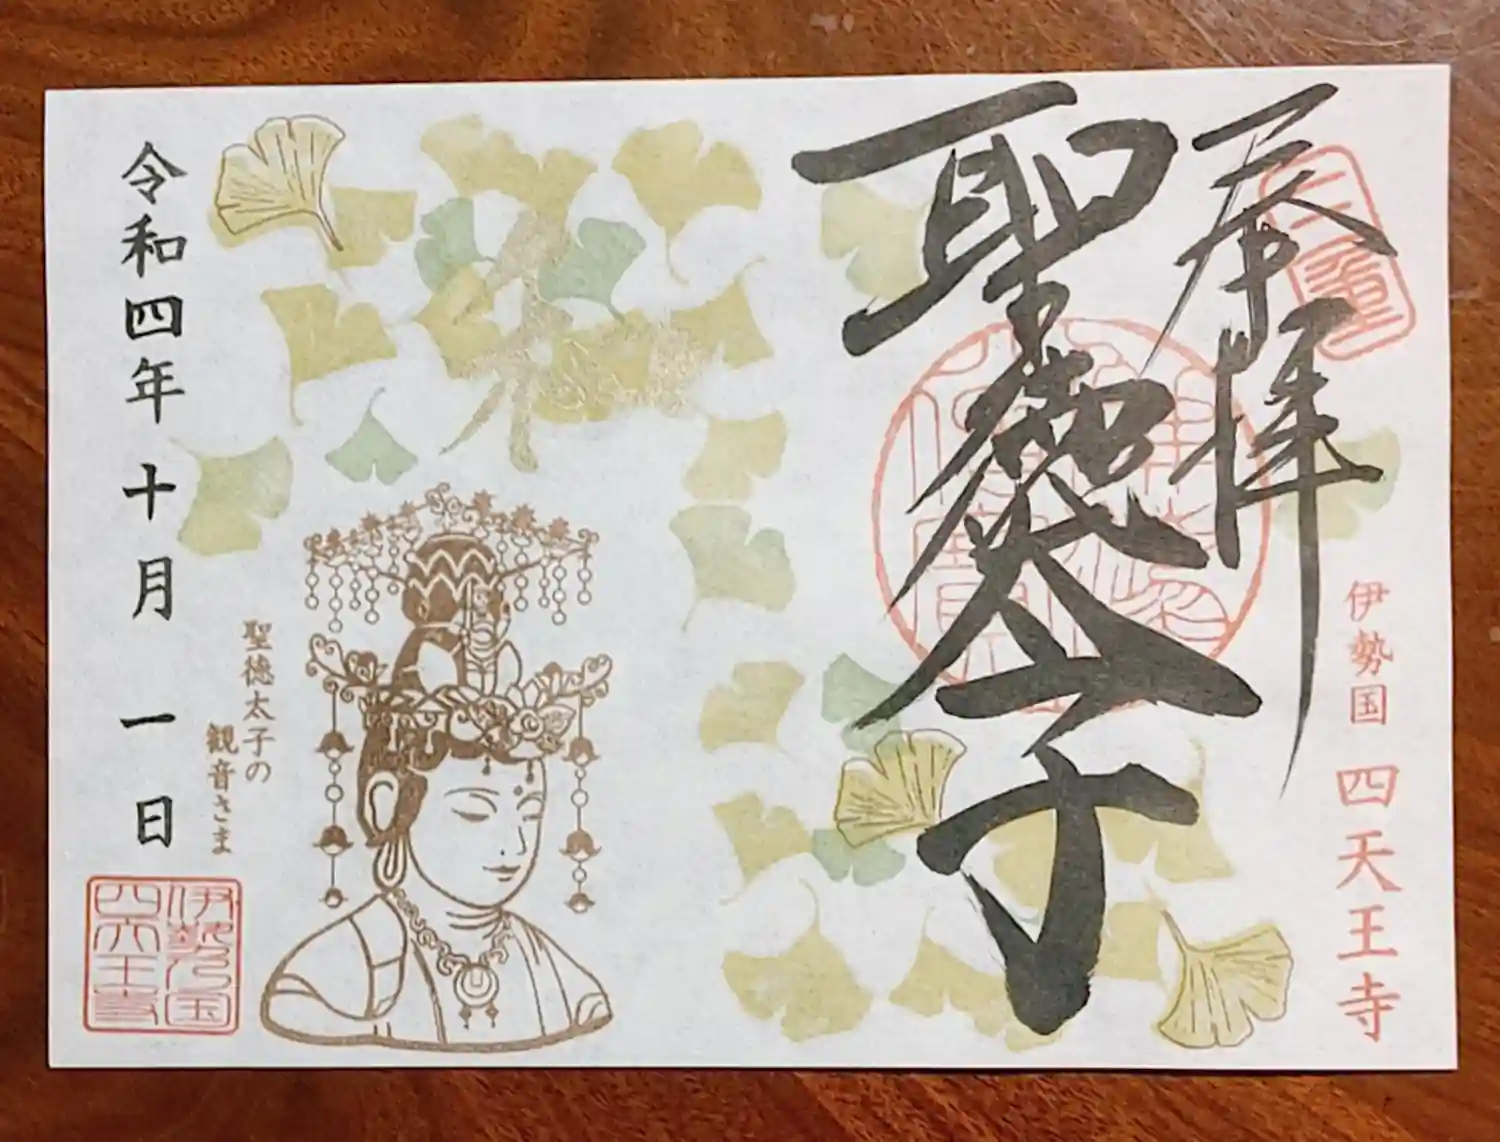 奉拝
聖徳太子
伊勢国 四天王寺
三重
秋
聖徳太子の
観音さま
令和四年十月一日
伊勢乃国
四天王寺